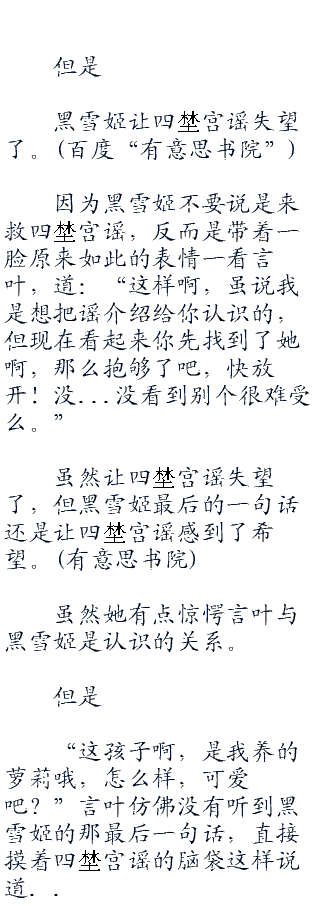 但是
黑雪姬让四埜宫谣失望
了。(百度“有意思书院”)
因为黑雪姬不要说是来
救四埜宫谣，反而是带着一
脸原来如此的表情一看言
叶，道：“这样啊，虽说我
是想把谣介绍给你认识的，
但现在看起来你先找到了她
啊，那么抱够了吧，快放
开！没...没看到别个很难受
么。”
虽然让四埜宫谣失望
了，但黑雪姬最后的一句话
还是让四埜宫谣感到了希
望。(有意思书院)
虽然她有点惊愕言叶与
黑雪姬是认识的关系。
但是
“这孩子啊，是我养的
萝莉哦，怎么样，可爱
吧？”言叶仿佛没有听到黑
雪姬的那最后一句话，直接
摸着四埜宫谣的脑袋这样说
道..